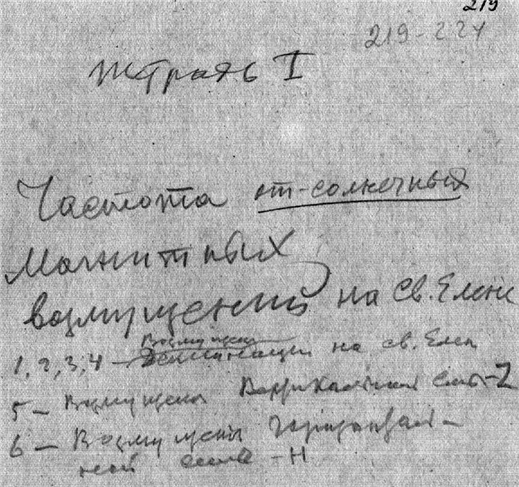 219
219-224
тетрадь I
Частота от-солнечных
Магнитных
возмущений на Св. Елене
1, 2, 3, 4 - возмущен. на св. Елен
5 - возмущены Вертикальной силы - Z
6 - Возмущены горизонталь-
ной силы - H